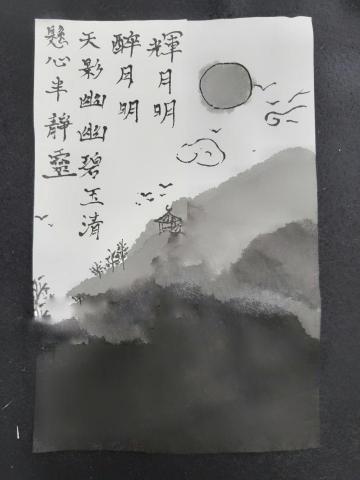 輝月明
醉月明
天影幽幽碧玉清
懸心半靜靈